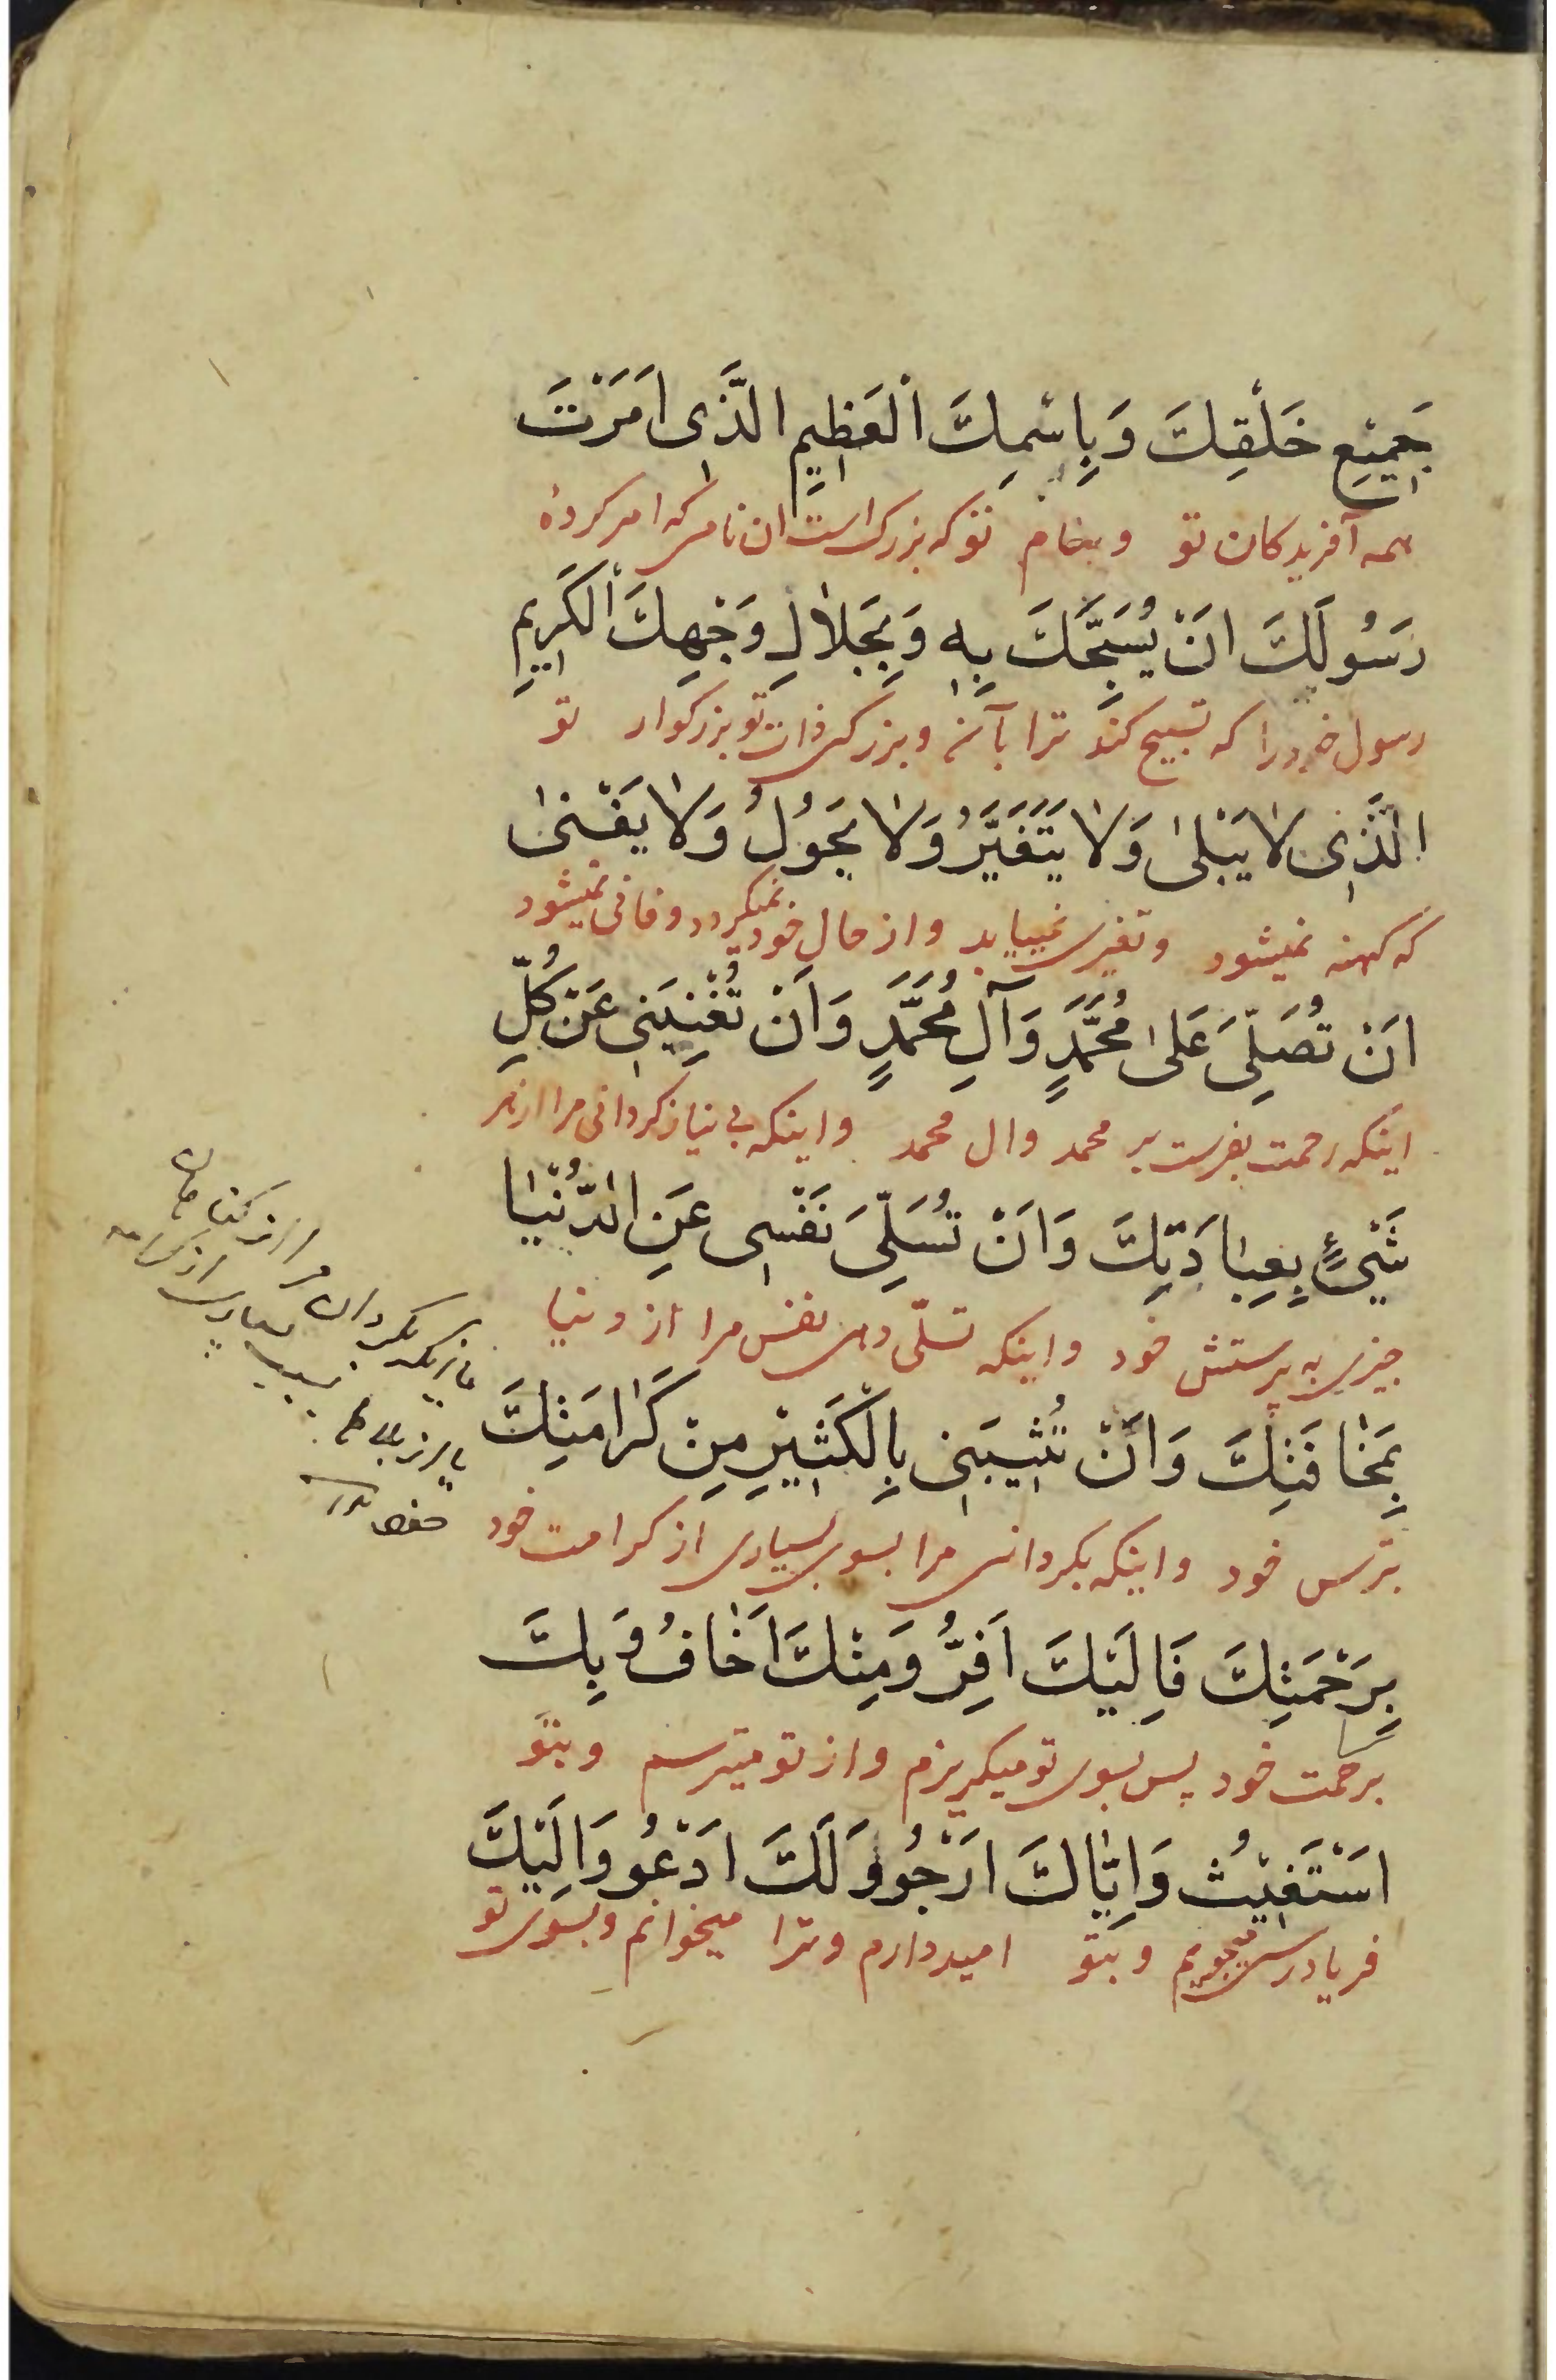 جَمِيْعِ خَلْقِكَ وَبِاسْمِكَ اْلعَظِيمِ الَّذِى اَمَرْتَ
همه آفریدکان تو وبنام توکه بزرک است ان نامی که امر کردهٔ
رَسُولَكَ اَنْ يُسَبِّحَكَ بِهِ وَبِجَلاٰلِ وَجْهِكَ اْلكَرِيمِ
رسول خود را که تسبیح کند ترا بآن و بزرکی ذات تو بزرکوار تو
الَّذِى لاٰ يَبْلىٰ وَلاٰ يَتَغَيَّرُ وَلاٰ يَحوُلُ وَلاٰ يَفْنىٰ
که کهنه نمیشود وتغیری نمییابد واز حال خود نمیکردد وفانی نمیشود
اَنْ تُصَلِّىَ عَلىٰ مُحَمَّدٍ وَآلِ مُحَمَّدٍ وَاَنْ تُغْنِيَنِى عَنْ كُلِّ
اینکه رحمت بفرست بر محمد وال محمد واینکه بی نیاز کردانی مرا از هر
شَيْئٍ بِعِبٰادَتِكَ وَاَنْ تُسَلِّىَ نَفْسِى عَنِ الدُّنْيٰا
چیزی به پرستش خود واینکه تسلّی دهی نفس مرا از دنیا
بِمَخٰافَتِكَ وَاَنْ تُثِيبَنِى بِالْكَثِيْرِ مِنْ كَرٰامَتِكَ
بترس خود واینکه بکردانی مرا بسوی بسیاری از کرامت خود
بِرَحْمَتِكَ فَاِلَيْكَ اَفِرُّ وَمِنْكَ اَخٰافُ وَبِكَ
برحمت خود پس بسوی تو میکریزم واز تو میترسم وبتو
اسْتَغيْثُ وَاِيّٰاكَ اَرْجُو وَلَكَ اَدْعُو وَاِلَيْكَ
فریادرسی میجویم وبتو امیددارم وترا میخوانم وبسوی تو
یا اینکه بکردان مرا از کناهان
بسبب بسیاری از